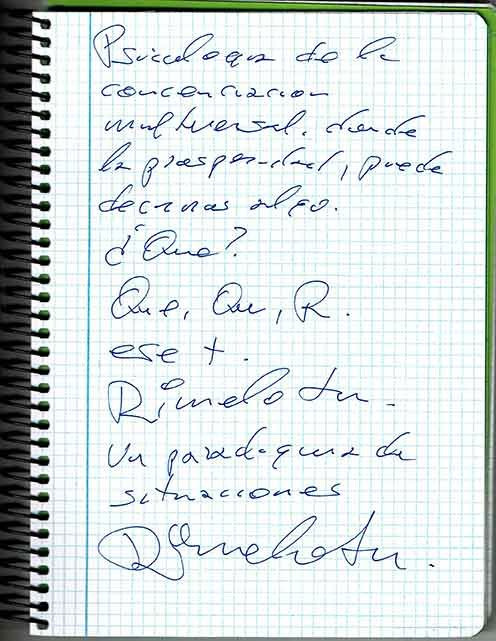 Psicologia de la
concenciacion
multiversal. donde
la prosperidad, puede
decirnos algo.
¿Que?
Que, Qu, R.
ese +.
Rimelo tu.
Un paradigma de
situaciones